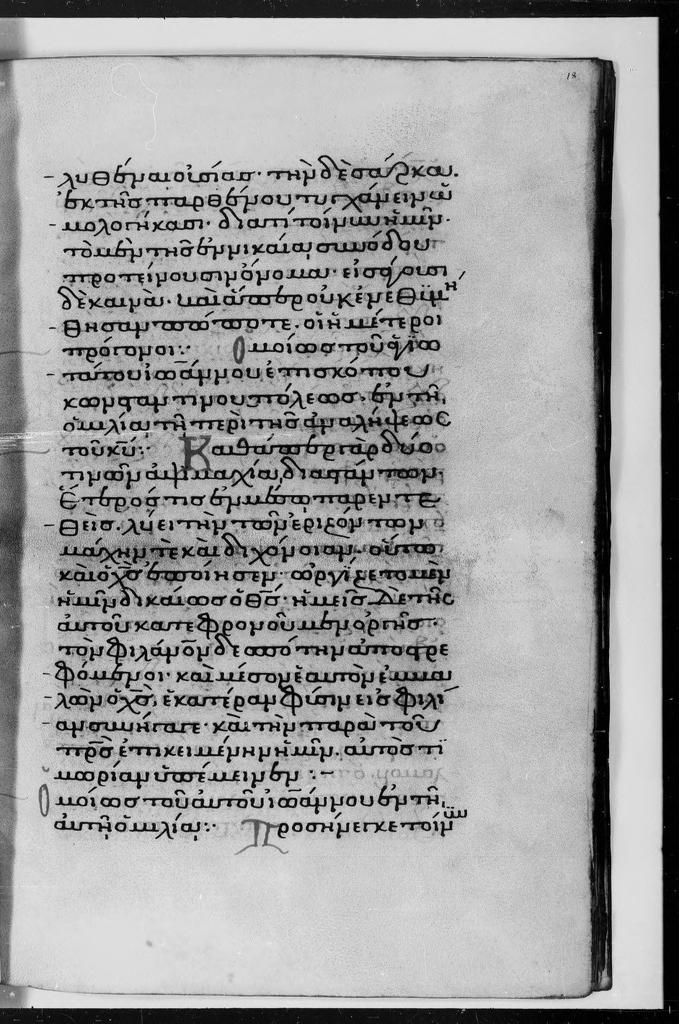 18
λυθέναι οὐσίας· τὴν δὲ σάρκα
ἐκ τῆς παρθένου τυγχάνειν ὡ
μολογήκασι· διατί τοίνυν ἡμῖν
τὸ μὲν τῆς ἐν νικαίᾳ συνόδου
προτείνουσιν ὄνομα· εἰσφρουσι
δὲ καινὰ· καὶ ἅπερ οὐκ ἐμεθϊμη
θησαν πώποτε· οἱ ἡμέτεροι
πρόγονοι:· Ὁμοίως τοῦ ἐν
ταπου ἰωάννου ἐπισκόπου
κωνσταντινουπόλεως· ἐν τῇ
ὁμιλίᾳ τῇ περὶ τῆς ἀναλήψεως
τοῦ κυ:· Καθάπερ γὰρ δύο
τινῶν ἀψιμαχίᾳ διαστάντων·
ἕτερός τις ἐν μέσῳ παρεντε
θεὶς· λύει τὴν τῶν ἐριζόντων
μάχην τὲ καὶ διχόνοιαν· οὕτω
καὶ ὁ χς ἐποίησεν· ὠργίζετο μὲν
ἡμῖν δικαίως ὁ θς· ἡμεῖς δὲ τῆς
αὐτοῦ κατεφρονοῦμεν ὀργῆς·
τὸν φιλανον δεσπότην ἀποστρε
φόμενοι· καὶ μέσον ἑαυτὸν ἐμβαλ
λὼν ὁ χς, ἑκατέραν φύσιν εἰς φιλί
αν συνήγαγε· καὶ τὴν παρὰ τοῦ
πρς ἐπικειμένην ἡμῖν· αὐτὸς τι
μωρίαν ὑπέμεινεν :–
Ὁμοίως τοῦ αὐτοῦ ἰωάννου ἐν τῇ
αὐτῇ ὁμιλίᾳ:· Προσήνεγκε τοίνυν